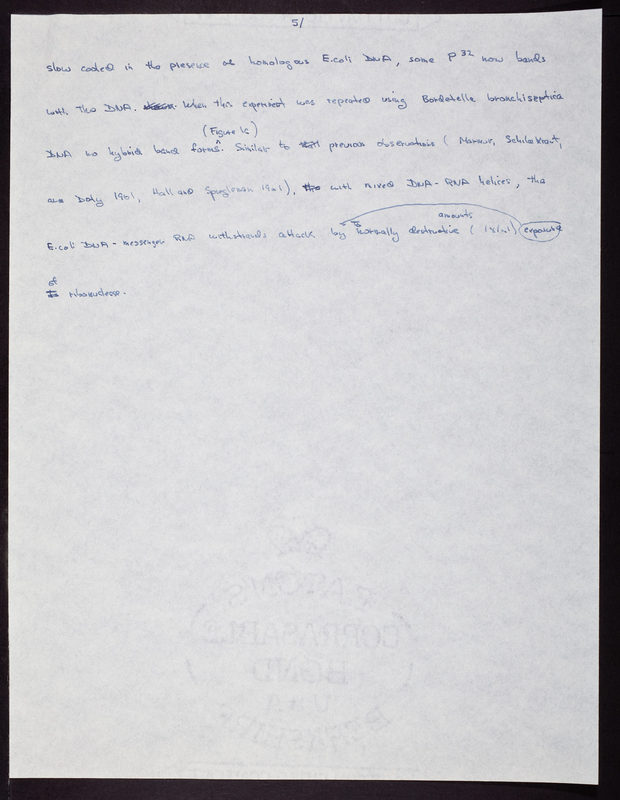 5/
slow cooled in the presence of homologous E.coli DNA, some P32 now bands
with the DNA. When this experiment was repeated using Bordetella bronchiseptica
(Figure 1c)
DNA no hybrid band forms. Similar to previous observations (Marmur, Schildkraut,
and Doty 1961, Hall and Spiegleman 1961), with mixed DNA-RNA helices, the
amounts
E.coli DNA-messenger RNA withstands attack by normally destructive (1γ/ml) exposure
of
ribonuclease.
EATON'S
CORRASABLE
BOND
USA
BERKSHIRE